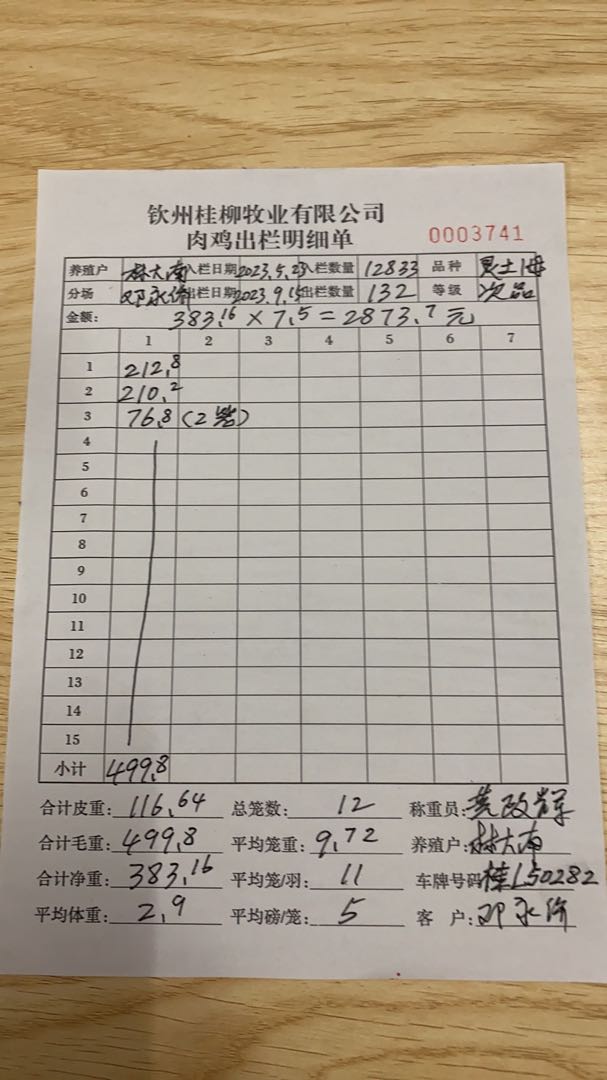 钦州桂柳牧业有限公司
肉鸡出栏明细单 0003741
养殖户 林大南 入栏日期 2023.5.23 入栏数量 12833 品种 灵土1母
分场 邓永 出栏日期 2023.9.15 出栏数量 132 等级 次品
金额: 383.16 × 7.5 = 2873.7元
1 2 3 4 5 6 7
1 212.8
2 210.2
3 76.8 (2笼)
4
5
6
7
8
9
10
11
12
13
14
15
小计 499.8
合计皮重: 116.64 总笼数: 12 称重员: 黄
合计毛重: 499.8 平均笼重: 9.72 养殖户: 林大南
合计净重: 383.16 平均笼/羽: 11 车牌号码 桂L50282
平均体重: 2.9 平均磅/笼: 5 客 户: 邓永